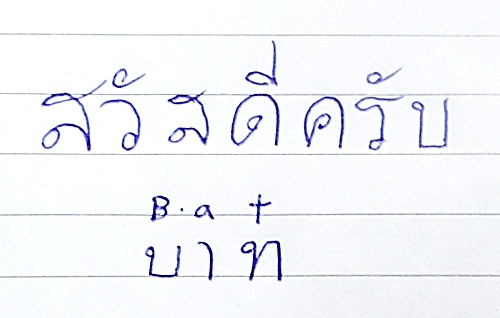 สวัสดีครับ
B.a t
บาท